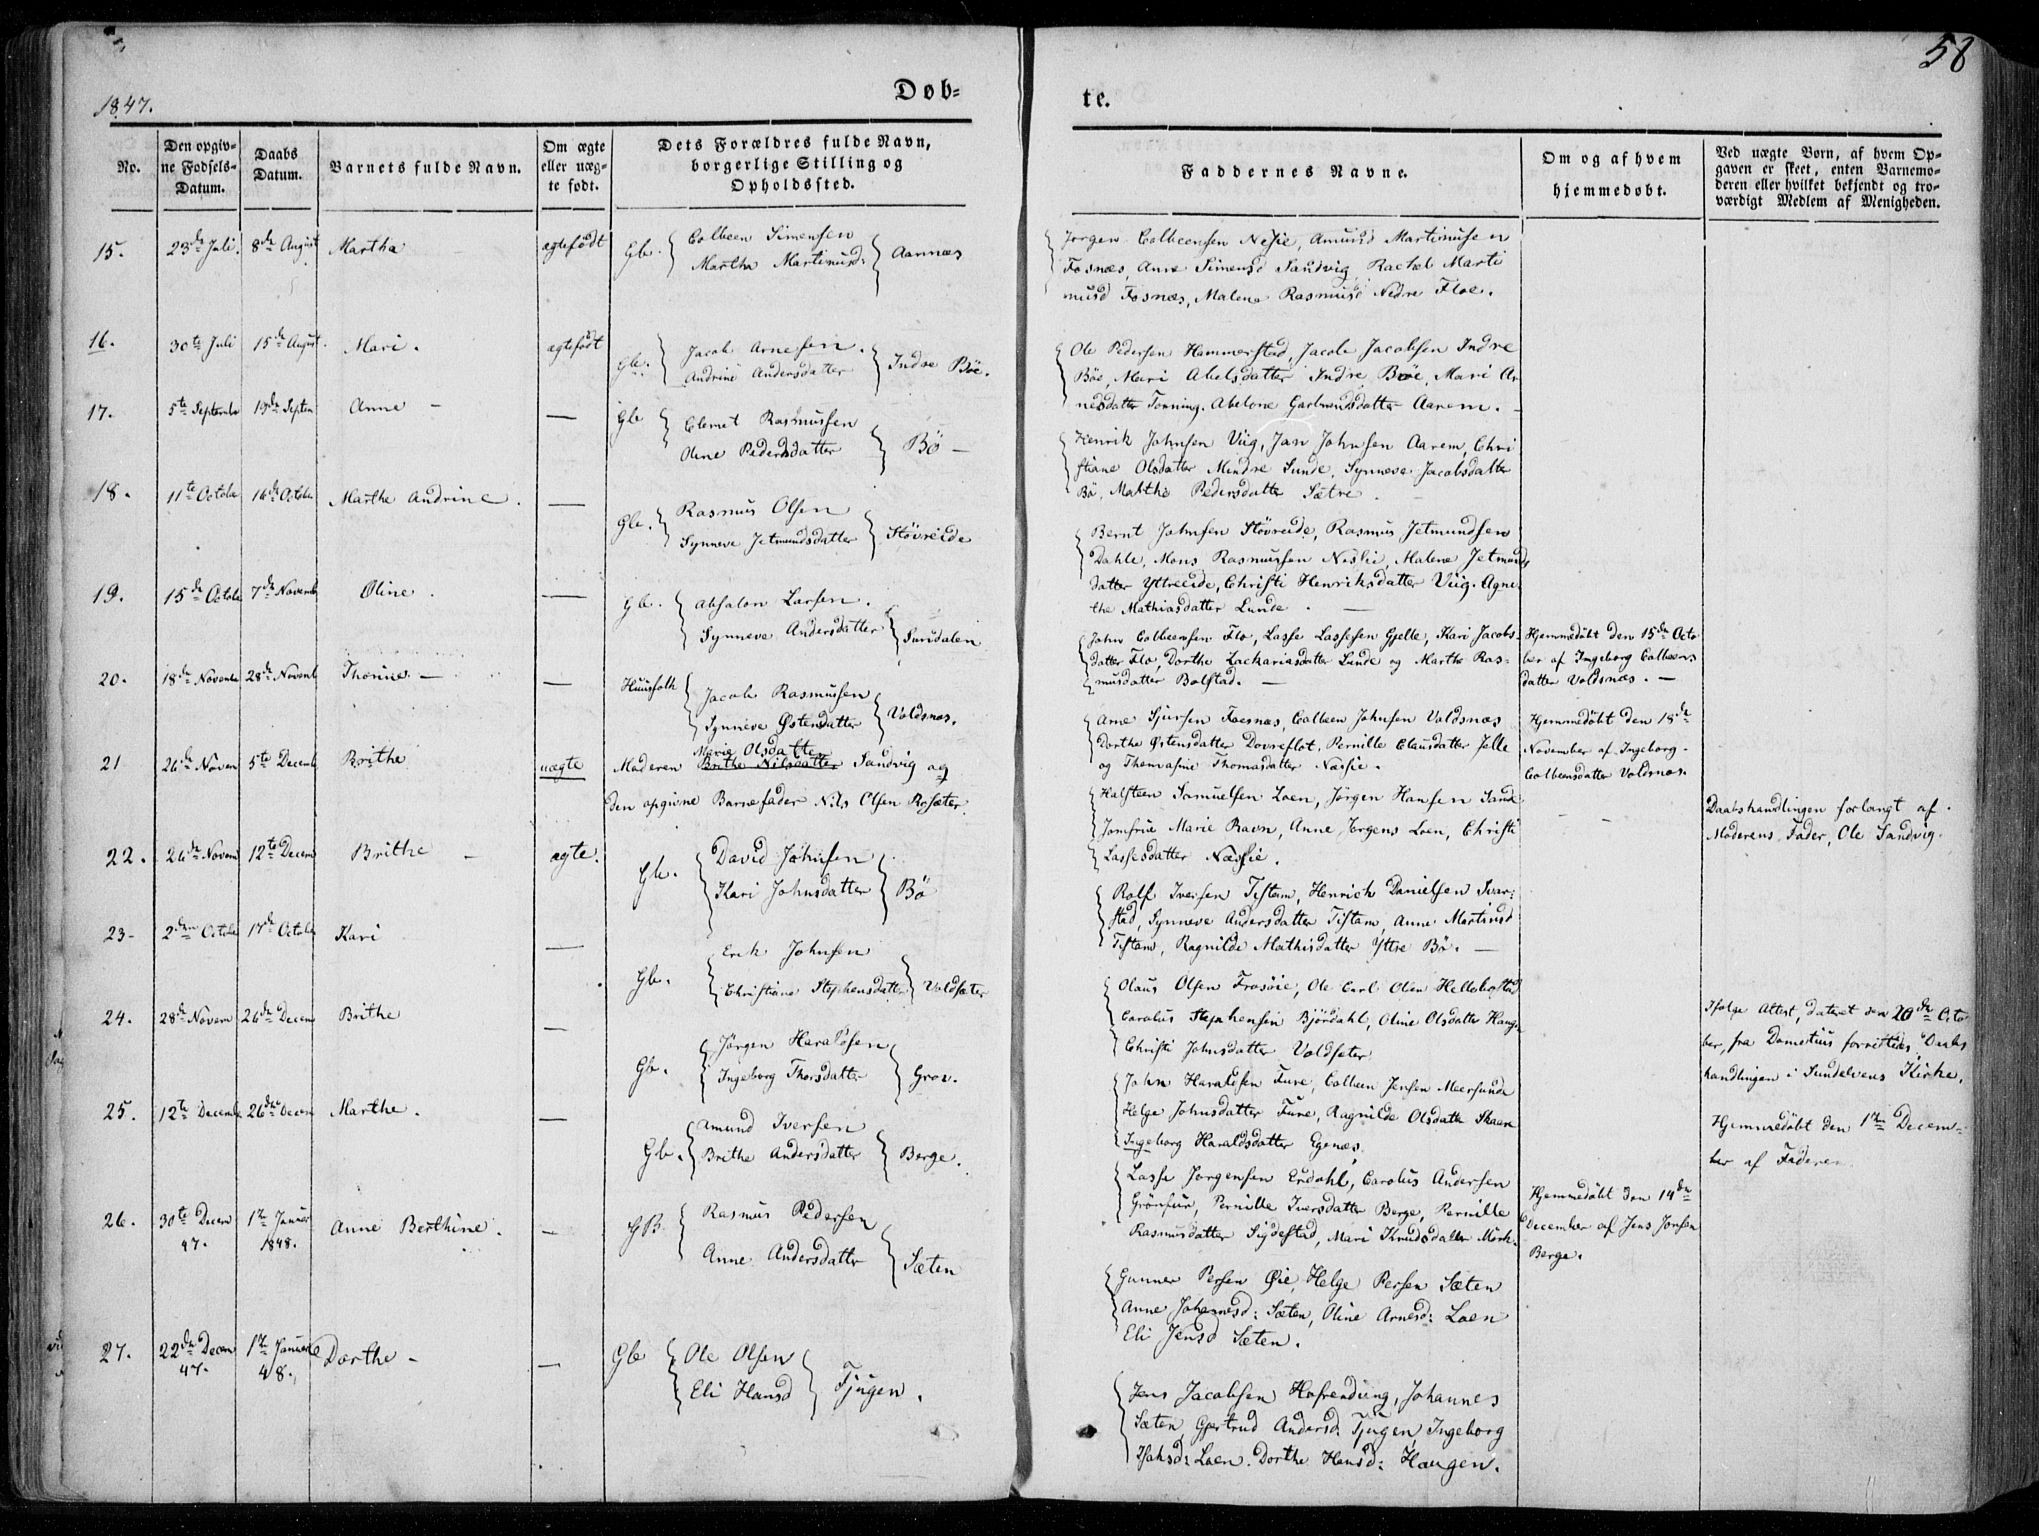 58
1847.
Døb=
te.
No.
Den opgiv-
ne Fødsels-
Datum.
Daabs
Datum.
Barnets fulde Navn.
Om ægte
eller uæg-
te født.
Dets Forældres fulde Navn,
borgerlige Stilling og
Opholdssted.
Faddernes Navne.
Om og af hvem
hjemmedøbt.
Ved uægte Børn, af hvem Op-
gaven er skeet, enten Barnemo-
deren eller hvilket bekjendt og tro-
værdigt Medlem af Menigheden.
15. 23de Juli. 8de August Martha ægtefødt Gb. Colbeen Simensen
Martha Martinusd: Aannæs
Jørgen Colbeensen Nesie, Amund Martinusen
Fosnæs, Anne Simensd Sandvig, Rachel Marti
nusd Fosnæs, Malene Rasmusd Nedre Floe.
16. 30te Juli 15de August. Mari. ægtefødt Gb. Jacob Arnesen.
Andrine Andersdatter Indre Böe.
Ole Pedersen Hammerstad, Jacob Jacobsen Indre
Böe, Mari Abelsdatter Indre Böe, Mari Ar
nesdatter Tonning. Abelone Gartmundsdatter Aarem.
17. 5te Septembr 19de Septem Anne — — Gb Clemet Rasmussen
Oline Pedersdatter Bö —
Henrik Johnsen Viig, Jan Johnsen Aarem, Chri
stiane Olsdatter Mindre Sunde, Synneve Jacobsdatter
Bö, Mathe Pedersdatter Sætre.
18. 11te October 16de October Marthe Andrine. — Gb. Rasmus Olsen
Synneve Jetmundsdatter Störeide
Bernt Johnsen Störeide, Rasmus Jetmundsen
Dahle, Mons Rasmussen Neslie, Malene Jetmunds
datter Yttreeide, Christi Henriksdatter Viig. Agne
the Mathiasdatter Lunde.
19. 15de October 7de Novembr Oline. — Gb. Absalon Larsen.
Synneve Andersdatter Sundalen
John Colbeensen Flo, Lasse Lassesen Gjelle, Kari Jacobs-
datter Flo, Dorthe Zachariasdatter Lunde og Marthe Ras-
musdatter Bolstad. —
Hjemmedöbt den 15de Octo
ber af Ingeborg Colbeens
datter Voldsnæs. —
20. 18de Novembr 28de Novembr Thomine — — Huusfolk Jacob Rasmussen
Synneve Östensdatter Voldsnæs.
Arne Sjursen Foesnæs, Colbeen Johnsen Voldsnæs
Dorthe Östensdatter Dovreflot, Pernille Clausdatter Jelle
og Thomasine Thomasdatter Næssie.
Hjemmedöbt den 18de
November af Ingeborg
Colbeensdatter Voldsnæs.
21 26de Novem 5te Decemb Brithe uægte Moderen Marie Olsdatter Brithe Nilsdatter Sandvig og
den opgivne Barnefader Nils Olsen Rosæter.
Halsteen Samuelsen Loen, Jörgen Hansen Sande
Jomfrue Marie Ravn, Anne Jörgens Loen, Christi
Lassesdatter Næssie.
Daabshandlingen forlangt af
Moderens Fader, Ole Sandvig.
22. 26de Novem 12te Decem Brithe — ægte. Gb. David Johnsen
Kari Johnsdatter Bö
Rolf Iversen Tistam, Henrich Danielsen Svar-
stad, Synneve Andersdatter Tistam, Anne Martinusd
Tistam, Ragnilde Mathisdatter Yttre Bö. —
23 2den October 17de October Kari — Gb. Erik Johnsen
Christiane Stephensdatter Voldsæter
Olaus Olsen Frosöie, Ole Carl Olsen Hellebostad
Carolus Stephensen Björdahl, Oline Olsdatter Haugen
Christi Johnsdatter Voldsæter
Ifölge Attest, dateret den 20de Octo
ber, fra Domestius forrettedes Daabs
handlingen i Sundelvens Kirke.
24. 28de Novem 26de Decem Brithe — Gb. Jörgen Haraldsen
Ingeborg Thorsdatter Grov.
John Haraldsen Fure, Colbeen Jensen Meersunde
Helge Johnsdatter Fure, Ragnilde Olsdatter Skaare
Ingeborg Haraldsdatter Egenæs.
Hjemmedöbt den 1ste Decem-
ber af Faderen
25. 12te Decembr 26de Decem Marthe. — Gb. Amund Iversen
Brithe Andersdatter Berge.
Lasse Jörgensen Erdahl, Carolus Andersen
Grönfur, Pernille Iversdatter Berge, Pernille
Rasmusdatter Sigdestad, Mari Knudsdatter Mörk.
Hjemmedöbt den 14de
December af Jens Jensen
Berge.
26. 30te Decem 47. 1ste Januar 1848. Anne Berthine. — GB. Rasmus Pedersen
Anne Andersdatter Sæten
Gunner Persen Öie, Helge Persen Sæten
Anne Johannesd: Sæten, Oline Arnesd: Loen
Eli Jensd Sæten.
27. 22de Decem 47. 1ste Januar 48. Dorthe — — Gb Ole Olsen
Eli Hansd Tjugen.
Jens Jacobsen Hofrenduing, Johannes
Sæten, Gjertrud Andersd. Tjugen, Ingeborg
Isaksd: Loen. Dorthe Hansd: Haugen.